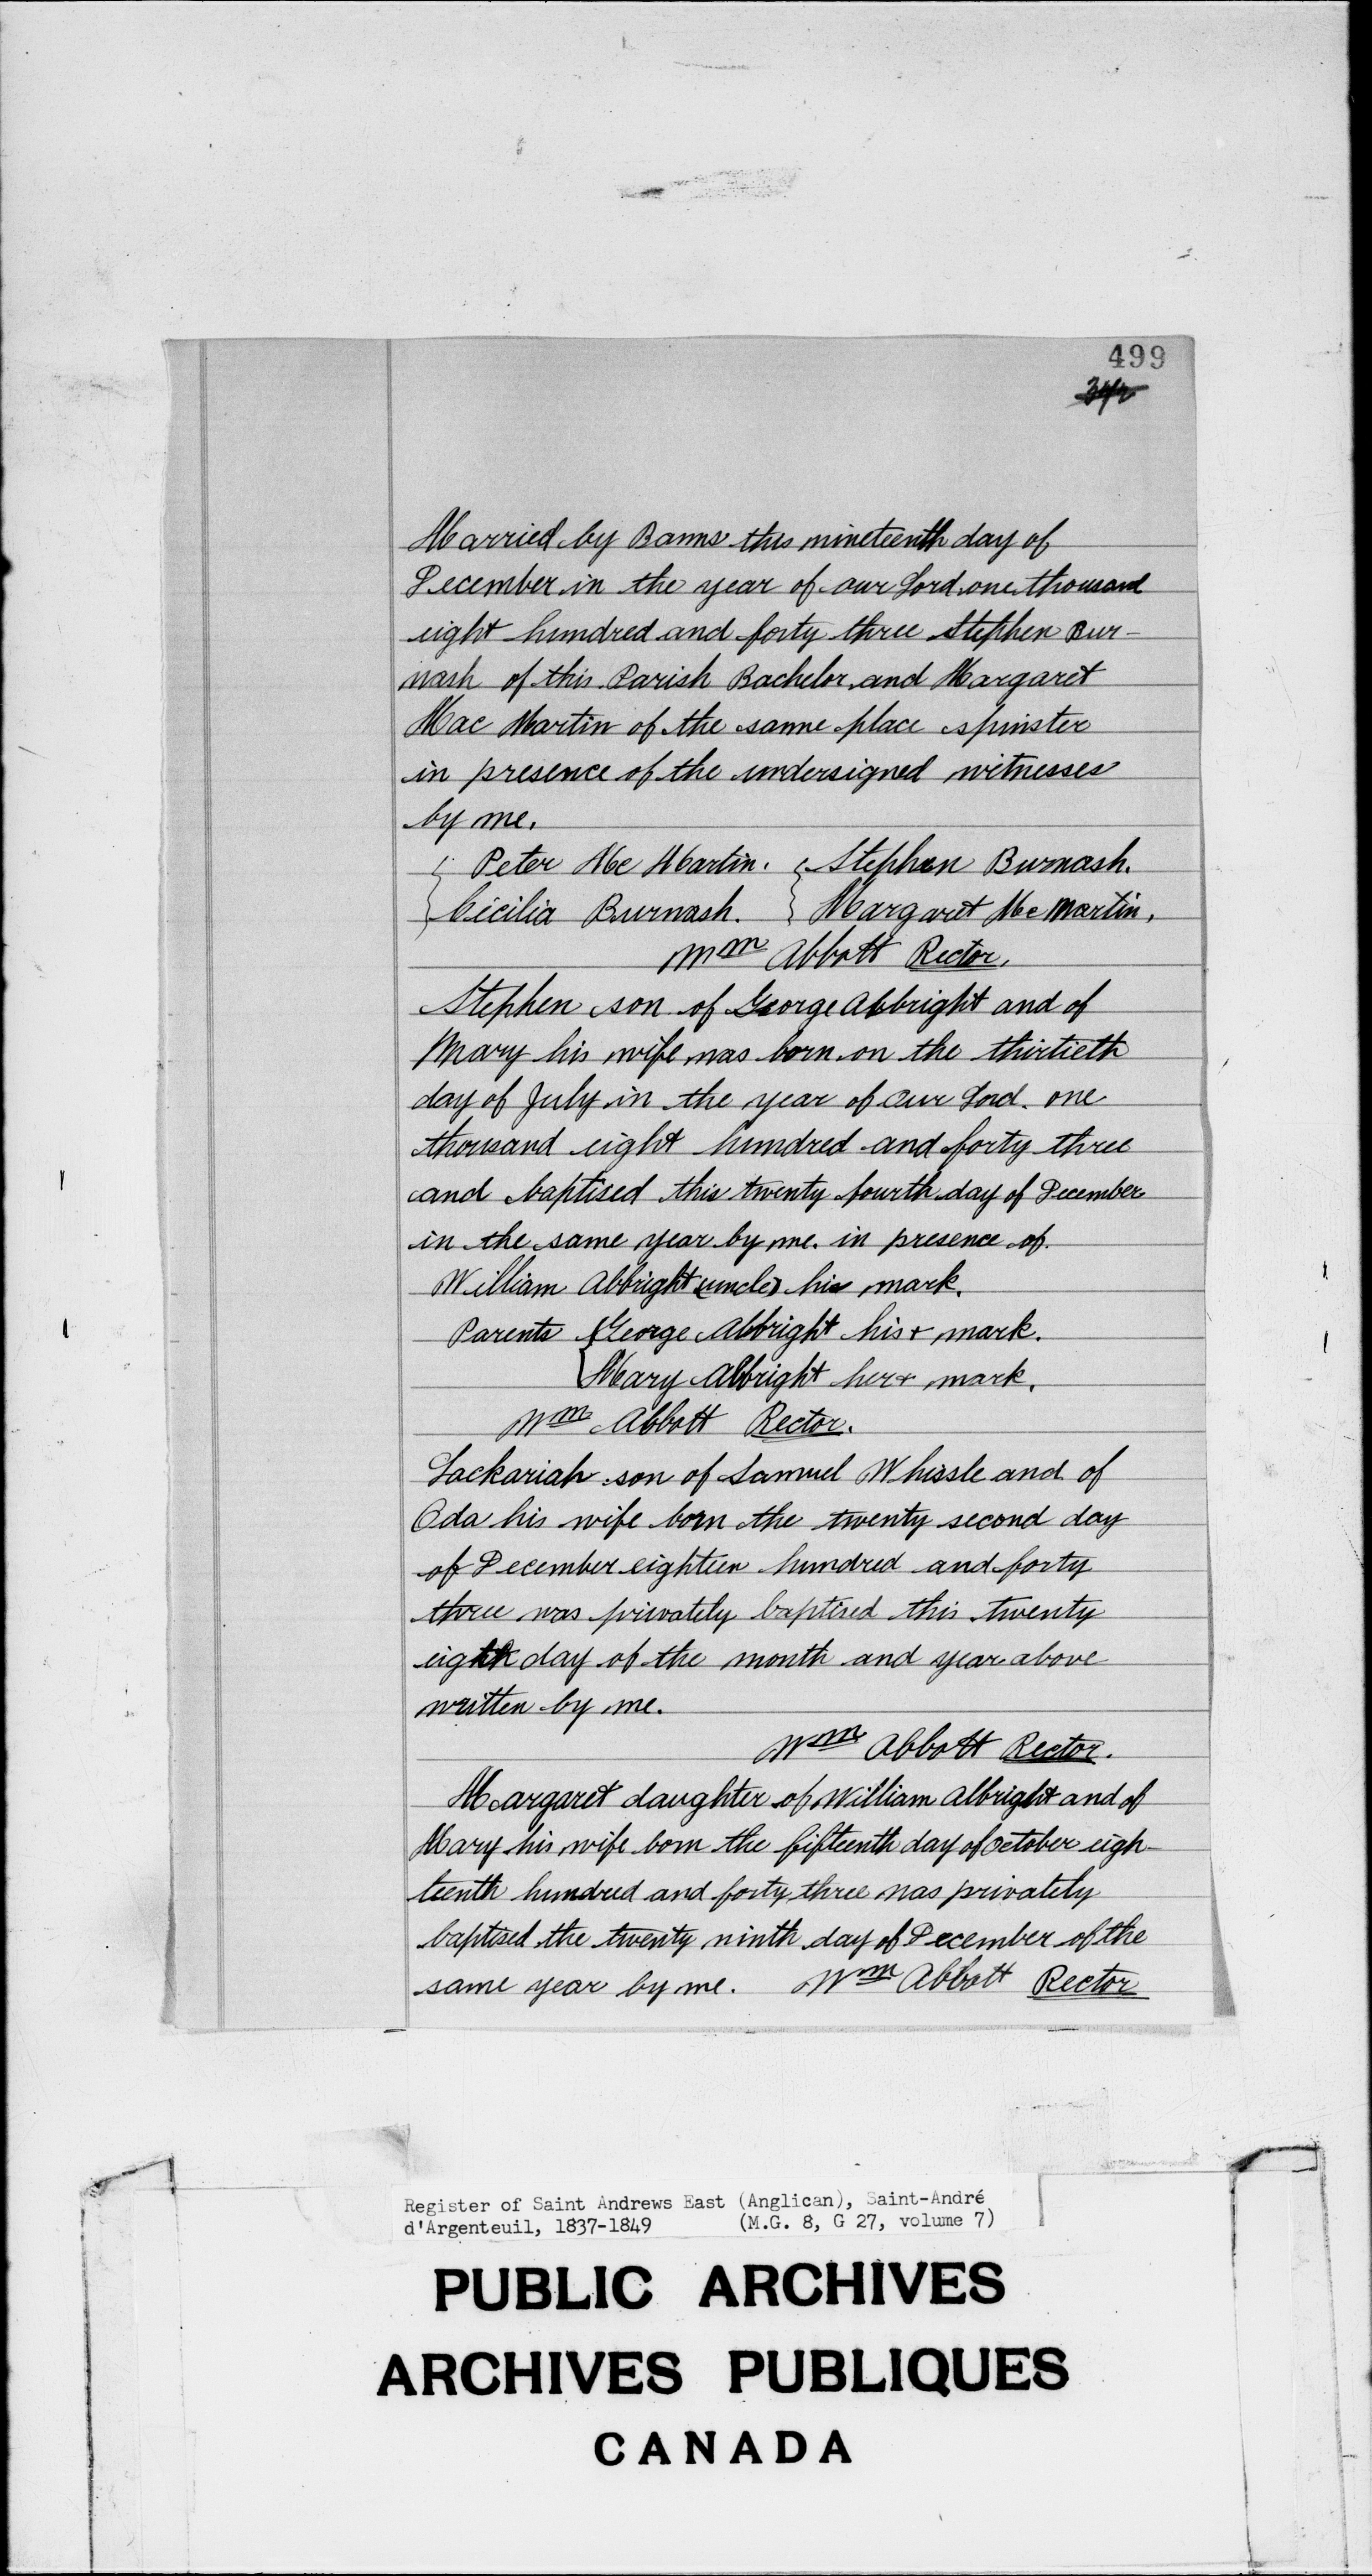 499
342
Married by Banns this nineteenth day of
December in the year of our Lord one thousand
eight hundred and forty three Stephen Bur-
nash of this Parish Bachelor and Margaret
Mac Martin of the same place spinster
in presence of the undersigned witnesses
by me.
{ Peter Mc Martin. { Stephen Burnash.
{ Cicilia Burnash. { Margaret Mc Martin.
Wm Abbott Rector.
Stephen son of George Abbright and of
Mary his wife was born on the thirtieth
day of July in the year of our Lord one
thousand eight hundred and forty three
and baptised this twenty fourth day of December
in the same year by me. in presence of
William Abbright (uncle) his mark.
Parents { George Abbright his + mark.
{ Mary Abbright her + mark.
Wm Abbott Rector.
Zackariah son of Samuel Whissle and of
Oda his wife born the twenty second day
of December eighteen hundred and forty
three was privately baptised this twenty
eighth day of the month and year above
written by me.
Wm Abbott Rector.
Margaret daughter of William Albright and of
Mary his wife born the fifteenth day of October eigh-
teenth hundred and forty three was privately
baptised the twenty ninth day of December of the
same year by me. Wm Abbott Rector
Register of Saint Andrews East (Anglican), Saint-André
d'Argenteuil, 1837-1849 (M.G. 8, G 27, volume 7)
PUBLIC ARCHIVES
ARCHIVES PUBLIQUES
CANADA